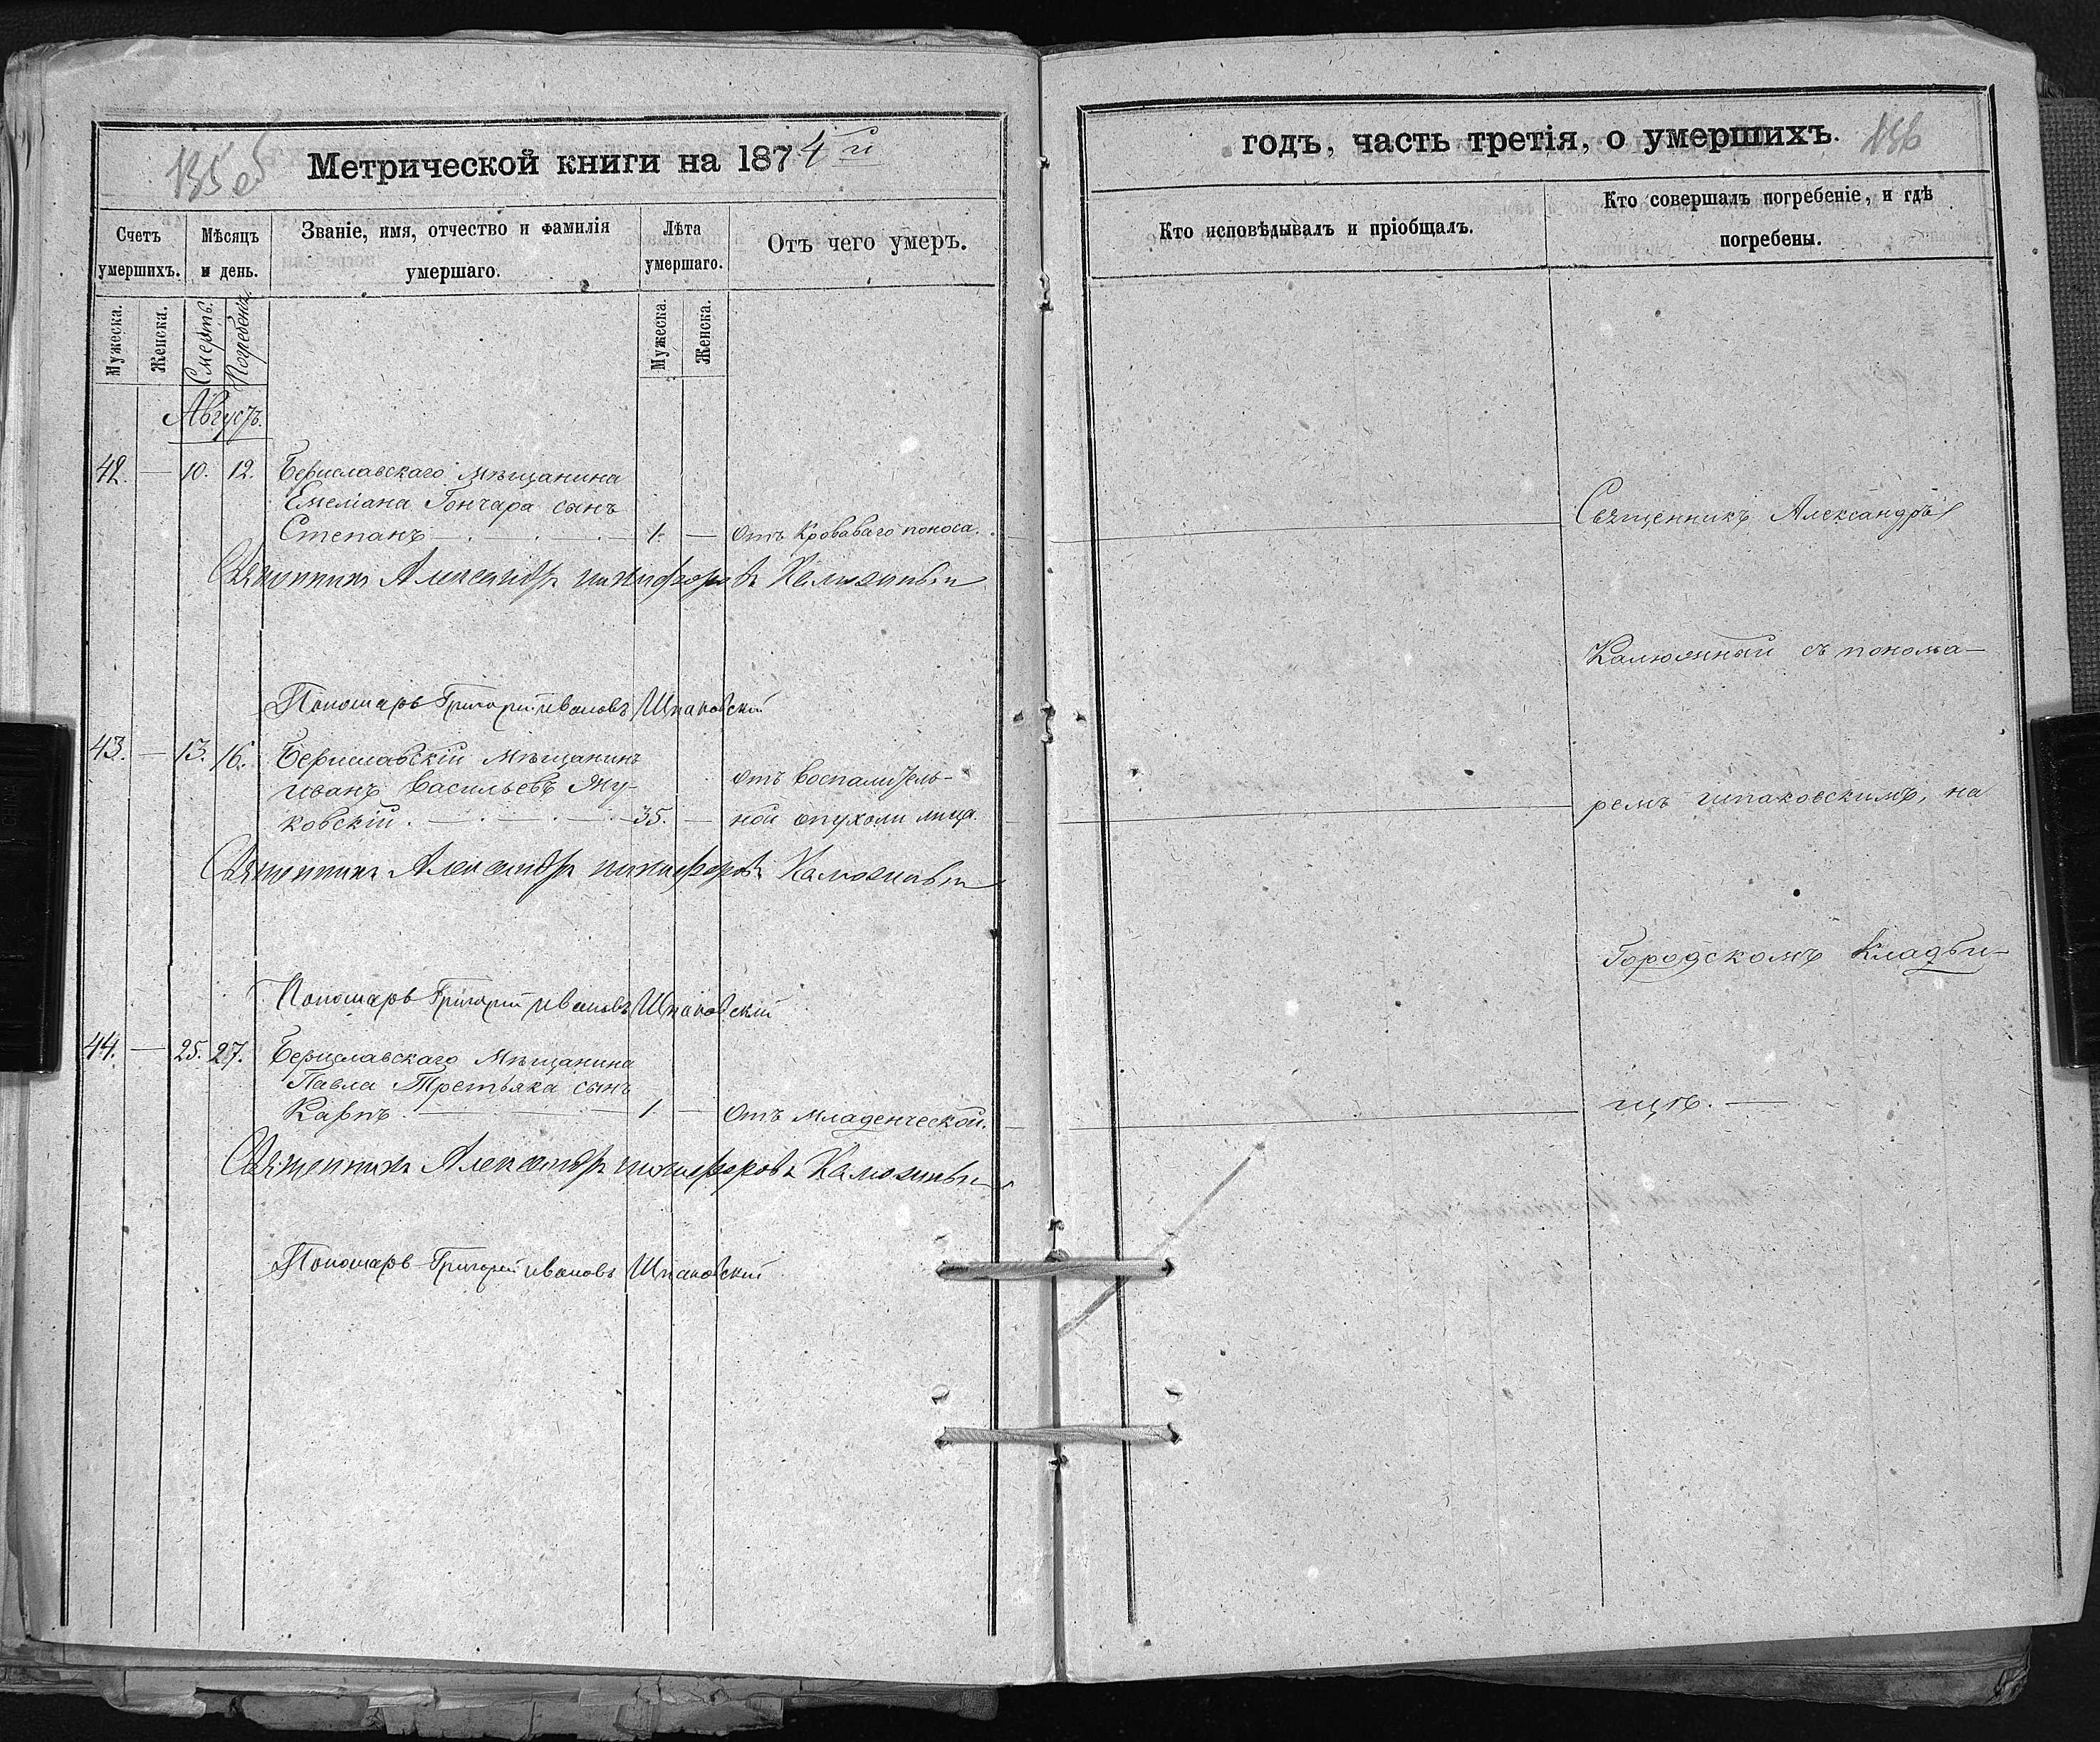 135 об
Метрической книги на 1874й
Счетъ умершихъ.
Мѣсяцъ и день.
Званіе, имя, отчество и фамилія умершаго.
Лѣта умершаго.
Отъ чего умеръ.
Мужеска.
Женска.
Смерть.
Погребенія.
Мужеска.
Женска.
Августъ.
42. — 10. 12. Бериславскаго мѣщанина
Емеліана Гончара сынъ
Степанъ — 1. — Отъ Кроваваго поноса.
Священникъ Александръ Никифоровъ Калюжный
Пономарь Григорій Ивановъ Шпаковскій
43. — 13. 16. Бериславскій мѣщанинъ
Иванъ Васильевъ Жу-
ковскій. — 35. —
отъ воспалитель-
ной опухоли лица.
Священникъ Александръ Никифоровъ Калюжный
Пономарь Григорій Ивановъ Шпаковскій
44. — 25. 27. Бериславскаго Мѣщанина
Павла Третьяка сынъ
Карпъ. — 1. — Отъ младенческой.
Священникъ Александръ Никифоровъ Калюжный
Пономарь Григорій Ивановъ Шпаковскій
годъ, часть третія, о умершихъ.
136
Кто исповѣдывалъ и пріобщалъ.
Кто совершалъ погребеніе, и гдѣ
погребены.
Священникъ Александръ
Калюжный съ понома-
ремъ Шпаковскимъ, на
Городскомъ Кладби-
щѣ. —